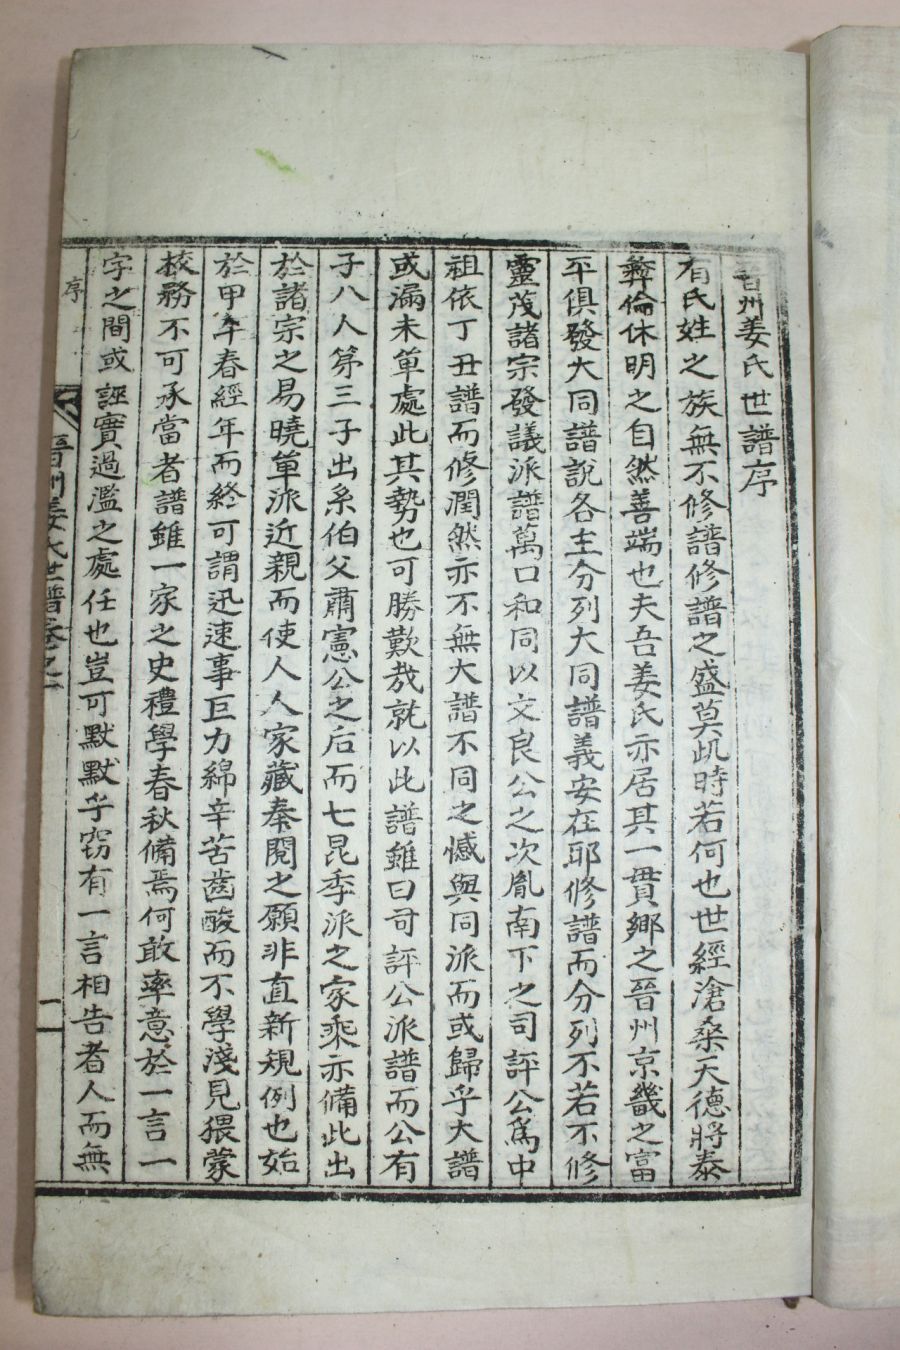 晉州姜氏世譜序
有氏姓之族無不修譜修譜之盛莫此時若何也世經滄桑天德將泰
彝倫休明之自然善端也夫吾姜氏亦居其一貫鄕之晉州京畿之富
平俱發大同譜說各主分列大同譜義安在耶修譜而分列不若不修
靈茂諸宗發議派譜萬口和同以文良公之次胤南下之司評公爲中
祖依丁丑譜而修潤然亦不無大譜不同之憾與同派而或歸乎大譜
或漏未單處此其勢也可勝歎哉就以此譜雖曰司評公派譜而公有
子八人第三子出系伯父肅憲公之后而七昆季派之家乘亦備此出
於諸宗之易曉單派近親而使人人家藏奉閱之願非直新規例也始
於甲午春經年而終可謂迅速事巨力綿辛苦齒酸而不學淺見猥蒙
校務不可承當者譜雖一家之史禮學春秋備焉何敢率意於一言一
字之間或誣實過濫之處任也豈可默默乎窃有一言相告者人而無
序
晉州姜氏世譜卷之一
一